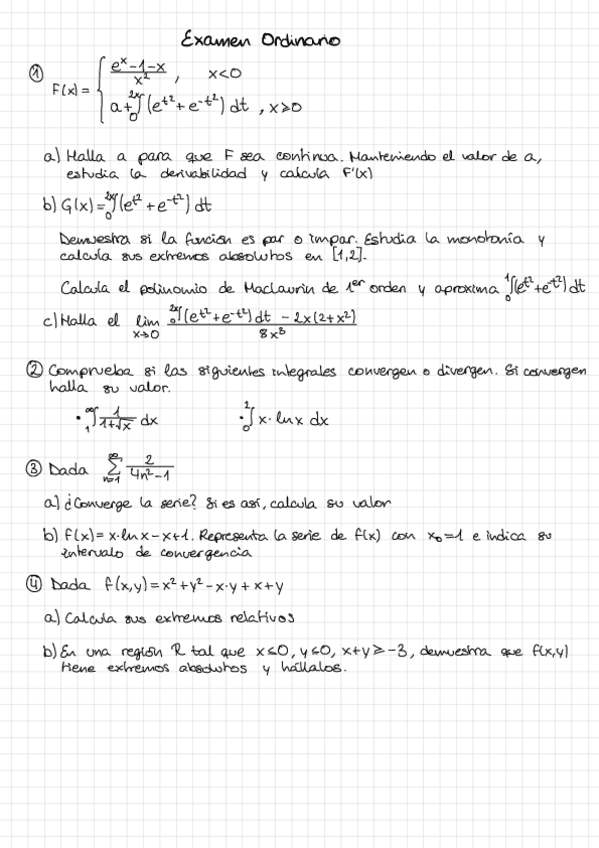 Examen Ordinario
① F(x) = { (e^x - 1 - x)/x² , x<0
a + ∫₀^{2x} (e^{t²} + e^{-t²}) dt , x≥0
a) Halla a para que F sea continua. Manteniendo el valor de a,
estudia la derivabilidad y calcula F'(x)
b) G(x) = ∫₀^{2x} (e^{t²} + e^{-t²}) dt
Demuestra si la función es par o impar. Estudia la monotonía y
calcula sus extremos absolutos en [1,2].
Calcula el polinomio de Maclaurin de 1er orden y aproxima ∫₀^1 (e^{t²} + e^{-t²}) dt
c) Halla el lim x→0 (∫₀^{2x} (e^{t²} + e^{-t²}) dt - 2x(2+x²)) / 8x³
② Comprueba si las siguientes integrales convergen o divergen. Si convergen
halla su valor.
• ∫₁^∞ 1/(1+√x) dx • ∫₀^2 x·lnx dx
③ Dada ∑_{n=1}^∞ 2/(4n²-1)
a) ¿Converge la serie? Si es así, calcula su valor
b) f(x) = x·lnx - x+1. Representa la serie de f(x) con x₀=1 e indica su
intervalo de convergencia
④ Dada f(x,y) = x² + y² - x·y + x + y
a) Calcula sus extremos relativos
b) En una región R tal que x≤0, y≤0, x+y≥-3, demuestra que f(x,y)
tiene extremos absolutos y hállalos.